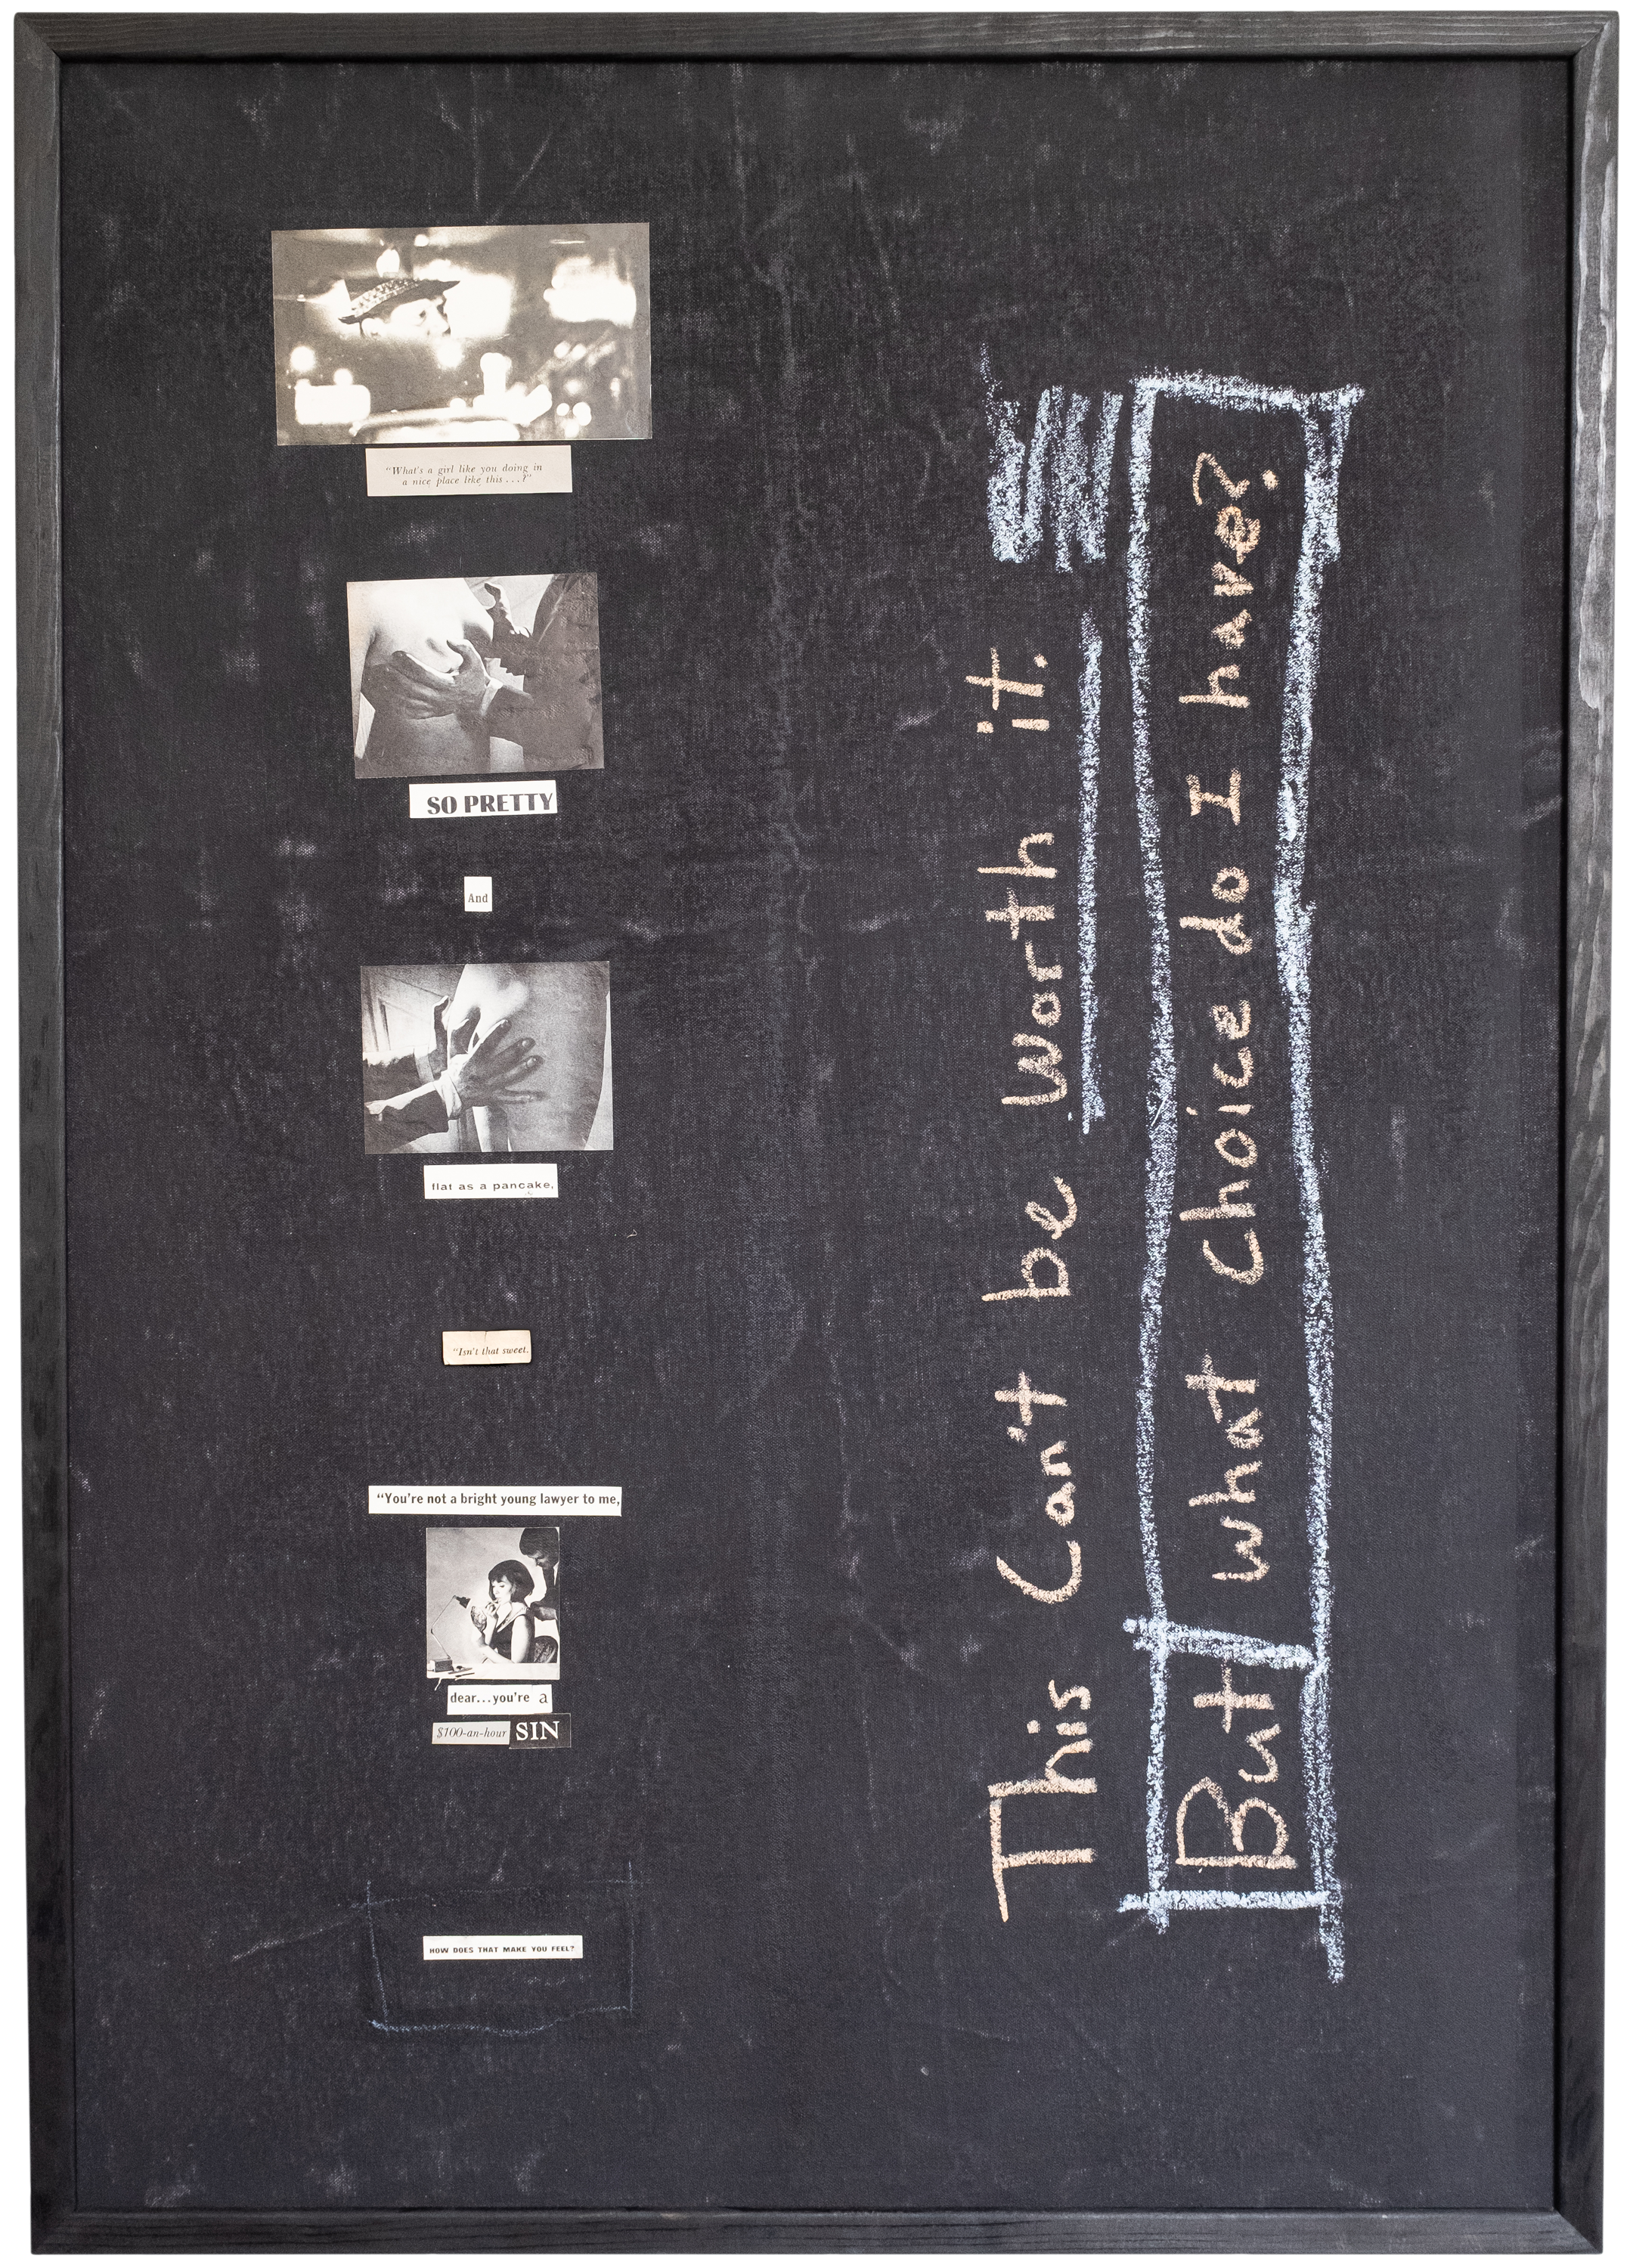 "What's a girl like you doing in
a nice place like this...?"
SO PRETTY
And
flat as a pancake,
"Isn't that sweet.
"You're not a bright young lawyer to me,
dear...you're a
$100-an-hour SIN
HOW DOES THAT MAKE YOU FEEL?
This Can't be Worth it.
But what Choice do I have?